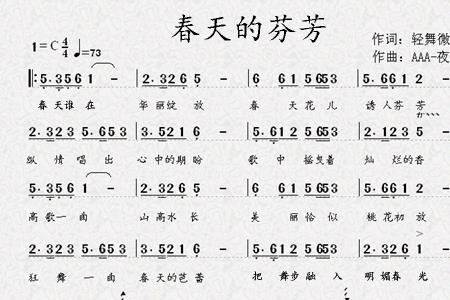 春天的芬芳
作词：轻舞微
1=C 4/4 ♩=73
作曲：AAA-夜
5·3561 - 2·3265 - 6 61 5653 5·6621 2
春天谁在 华丽绽放 春天花儿 诱人芬芳
2·323 5·653 3·5216 - 2·323 5653 5·6621 2
纵情唱出 心中的期盼 歌中摇曳着 灿烂的香
5·3561 - 2·3265 - 6 61 5653 5·6621 2
高歌一曲 山高水长 美丽恰似 桃花初放
2·323 5·653 3·5216 - 2·321 5653 5·6621 6
狂舞一曲 春天的芭蕾 把舞步融入 明媚春光